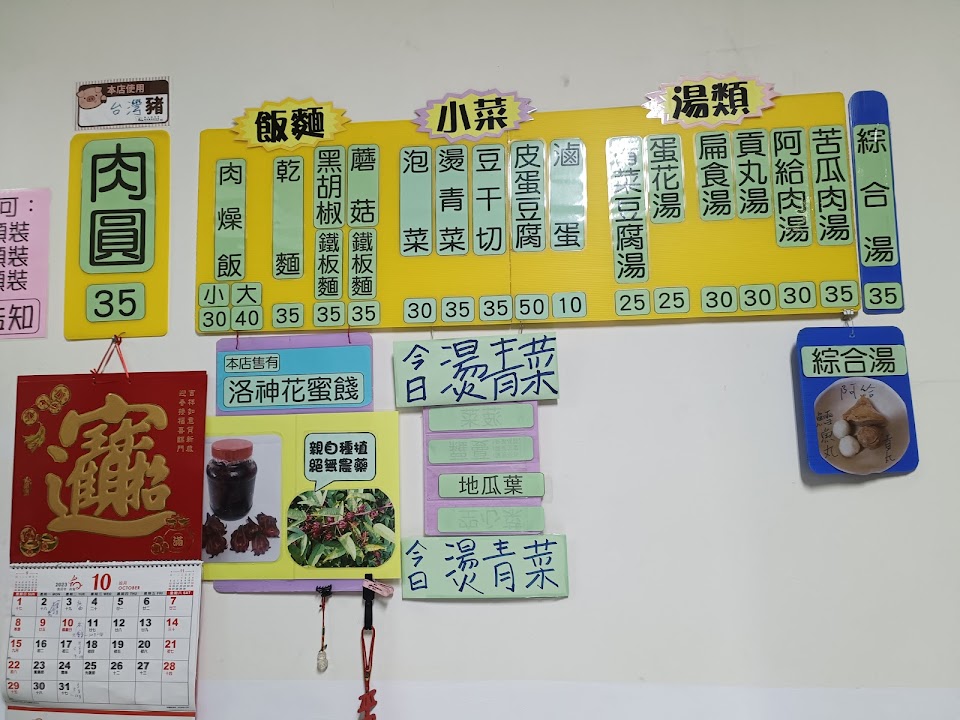 本店使用
台灣豬
肉圓
35
飯麵
肉燥飯
小 大
30 40
乾麵
35
黑胡椒鐵板麵
35
蘑菇鐵板麵
35
小菜
泡菜
30
燙青菜
35
豆干切
35
皮蛋豆腐
50
滷蛋
10
湯類
菜豆腐湯
25
蛋花湯
25
扁食湯
30
貢丸湯
30
阿給肉湯
30
苦瓜肉湯
35
綜合湯
35
可：
裝
裝
裝
告知
本店售有
洛神花蜜餞
親自種植
絕無農藥
今日燙青菜
地瓜葉
今日燙青菜
綜合湯
阿給
鱈魚丸
吉祥如意賀新歲
迎春接福喜臨門
招財進寶
滿
2023
10
OCTOBER
1 2 3 4 5 6 7
8 9 10 11 12 13 14
15 16 17 18 19 20 21
22 23 24 25 26 27 28
29 30 31